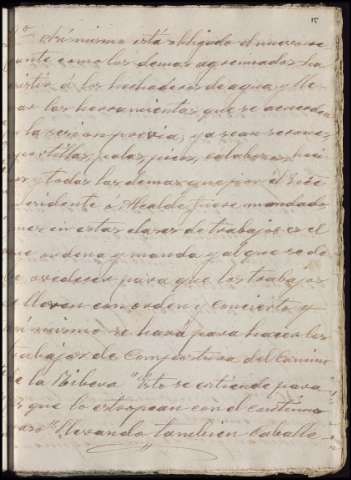 15
Asi mismo está obligado el nuevo ve
como los demas agremiados, ha
los hechaderos de agua y lle
las herramientas que se acuerden
la sesion previa, ya sean serones,
palas, picos,
y todas las demas que por el Sr
ó Alcalde fuere mandado
en estas clases de trabajos es el
ordena y manda y al que se de
ovedecer para que los trabajos
lleven con orden y concierto, y
mismo se hará para hacer los
trabajos de Compostura del Camino
de la Ribera "Esto se entiende para
que lo estropean con el continuo
" llevando tambien Caballe